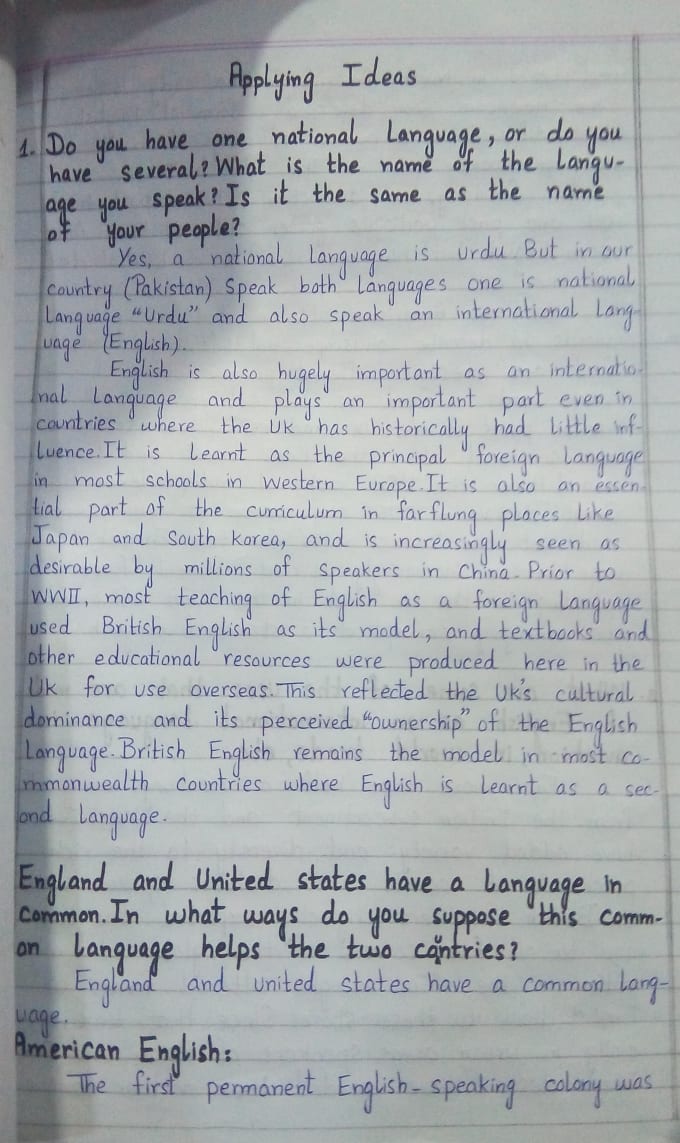 Applying Ideas
1. Do you have one national Language, or do you
have several? What is the name of the Langu-
age you speak? Is it the same as the name
of your people?
Yes, a national language is urdu. But in our
country (Pakistan) Speak both languages one is national
Language "Urdu" and also speak an international Lang-
uage (English).
English is also hugely important as an internatio-
nal Language and plays an important part even in
countries where the UK has historically had little inf-
luence. It is Learnt as the principal foreign language
in most schools in Western Europe. It is also an essen-
tial part of the curriculum in far flung places Like
Japan and South Korea, and is increasingly seen as
desirable by millions of speakers in China. Prior to
WWII, most teaching of English as a foreign Language
used British English as its model, and textbooks and
other educational resources were produced here in the
UK for use overseas. This reflected the UK's cultural
dominance and its perceived "ownership" of the English
Language. British English remains the model in most co-
mmonwealth countries where English is Learnt as a sec-
ond Language.
England and United states have a Language in
Common. In what ways do you suppose this comm-
on Language helps the two countries?
England and united states have a common Lang-
uage.
American English:
The first permanent English-speaking colony was